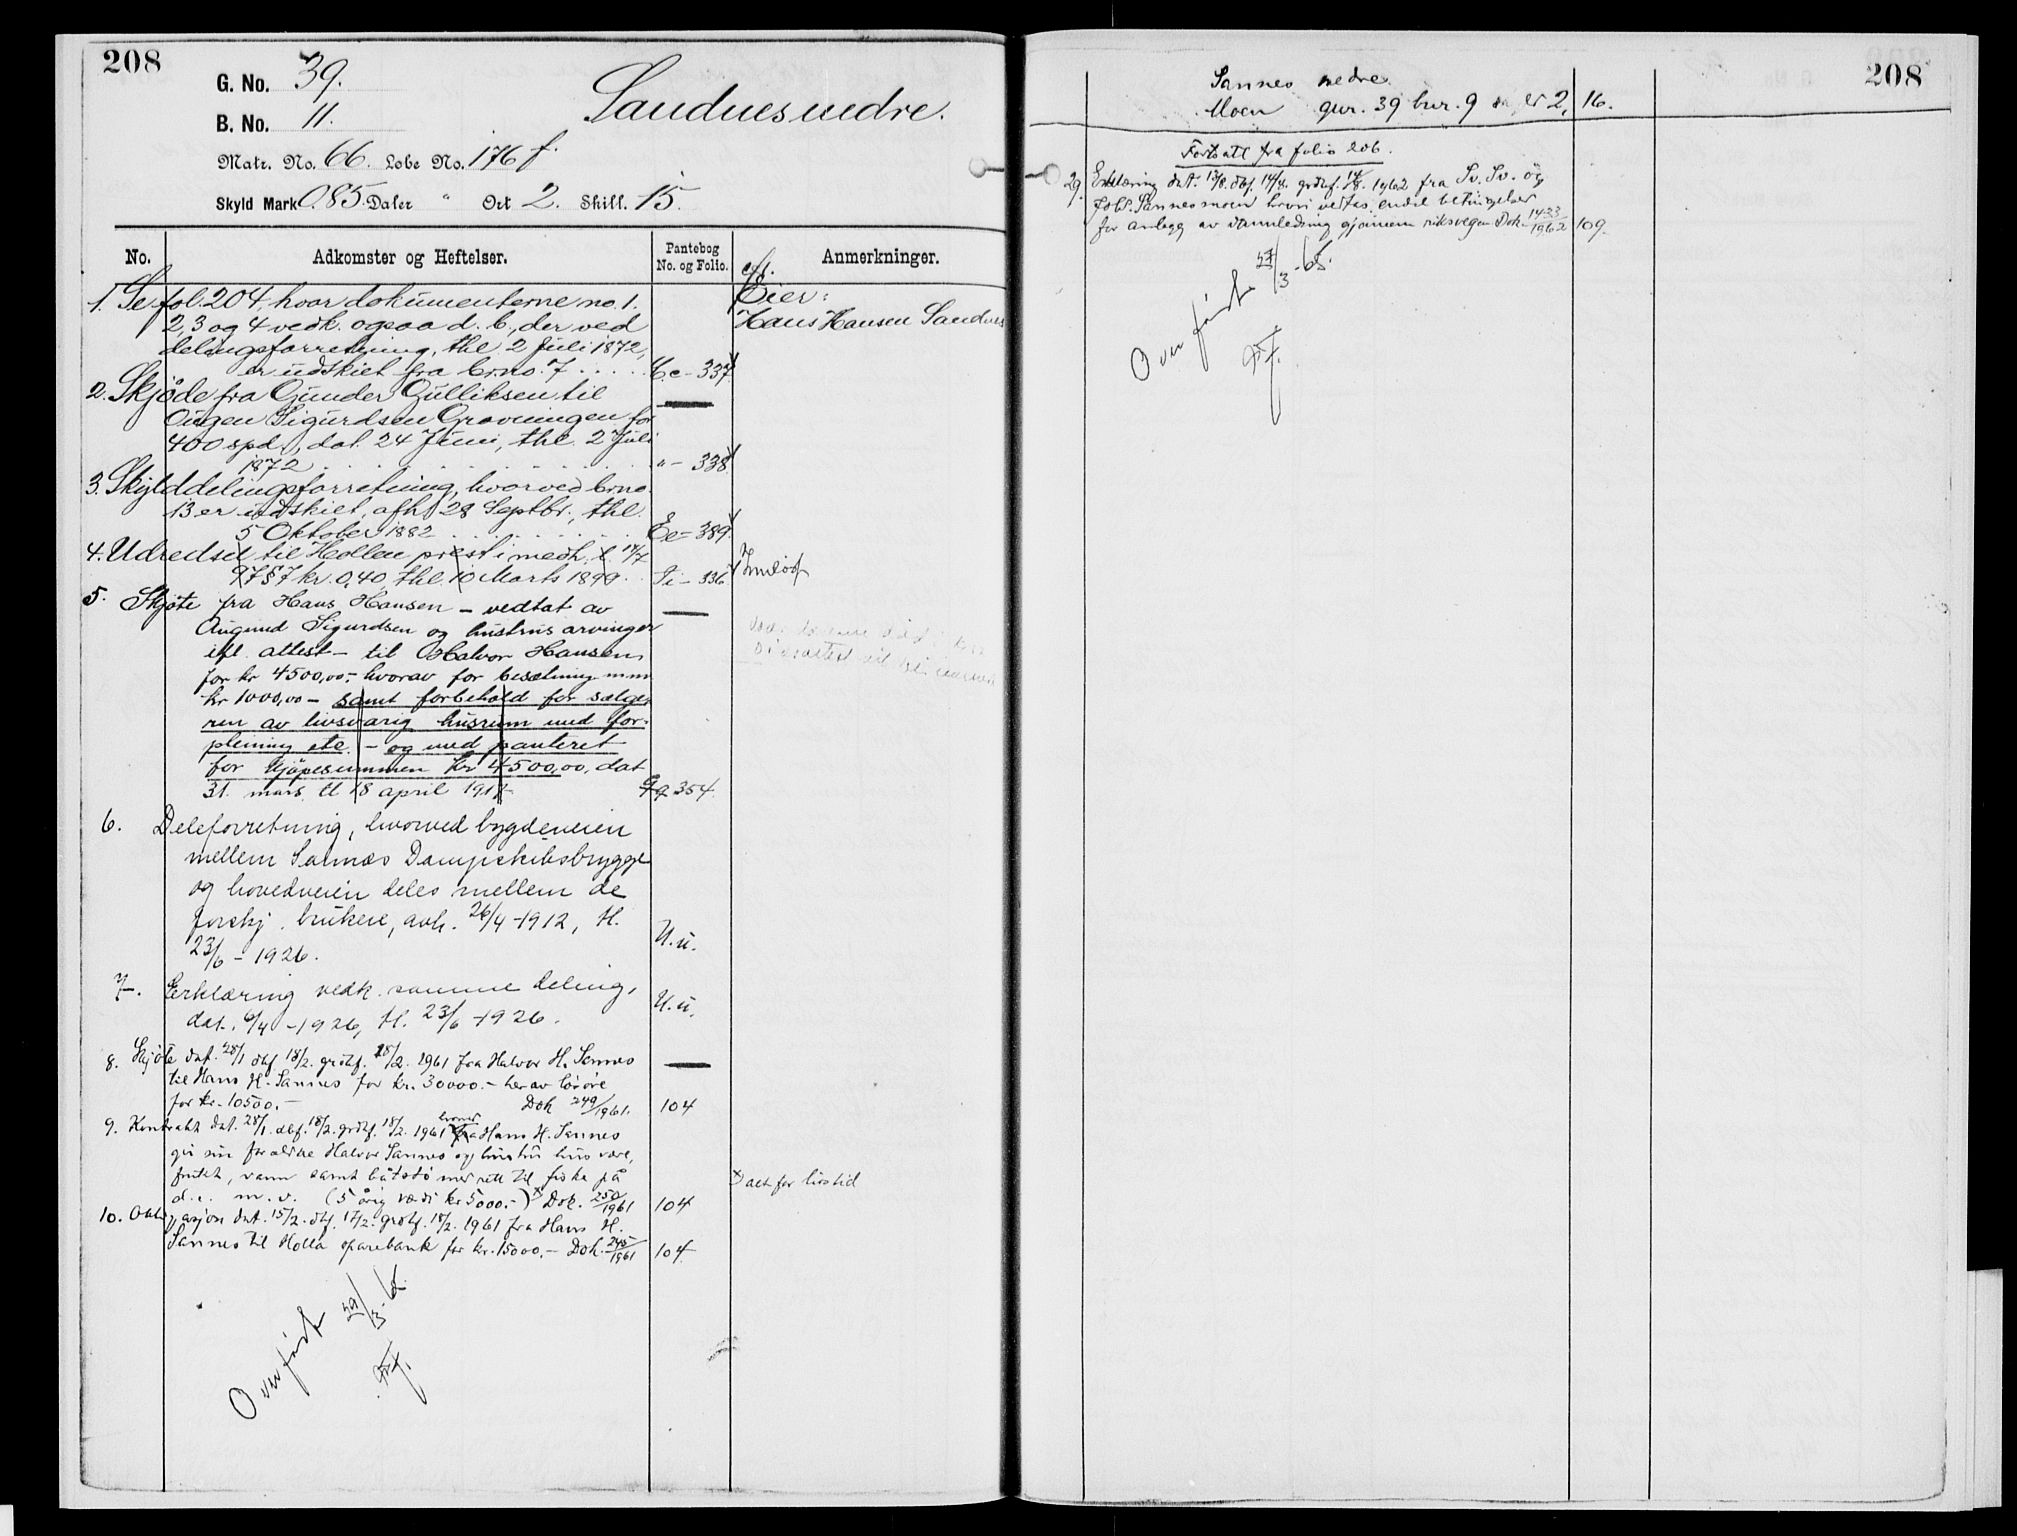 208
G. No. 39.
Sandnes nedre.
B. No. 11.
Matr. No. 66. Løbe No. 176 f.
Skyld Mark 0.85. Daler " Ort 2. Skill. 15.
No. Adkomster og Heftelser. Pantebog No. og Folio. Anmerkninger.
1. Se fol. 204, hvor dokumenterne no. 1.
2, 3 og 4 vedk. ogsaa d. b., der ved
delingsforretning, thl. 2 Juli 1872,
er udskiet fra brno. 7 . . . . . Cc - 337
Eier:
Hans Hansen Sandnes
2. Skjøde fra Gunder Gulliksen til
Ougen Sigurdsen Gravningen for
400 spd., dat. 24 Juni, thl. 2 Juli
1872 . . . . . " - 338
3. Skylddelingsforretning, hvorved brno.
13 er udskiet, afh. 28 Septbr., thl.
5 Oktober 1882 . . . . . Ee - 389
4. Udredsel til Hollen prest i medh. l. 14/7
97 § 7 kr. 0,40, thl. 10 Marts 1899. Ii - 336
Innløst
5. Skjøte fra Hans Hansen - vedtat av
Augund Sigurdsen og hustrus arvinger
ifl. attest - til Halvor Hansen
for kr 4500,00 - hvorav for besætning m.m
kr 1000,00 - samt forbehold for sælge-
ren av livsvarig husrum med for-
pleining etc. - og med panteret
for kjøpesummen kr 4500,00, dat
31. mars tl 18 april 191 Qq 354.
6. Deleforretning, hvorved bygdeveien
mellem Sannæs Dampskibsbrygge
og hovedveien deles mellem de
forskj. brukere, avh. 26/4 - 1912, tl.
23/6 - 1926. U.u.
7. Erklæring vedk. samme deling,
dat. 6/4 - 1926, tl. 23/6 - 1926. U.u.
8. Skjøte dat. 28/1 dbf. 18/2. grdbf. 18/2. 1961 fra Halvor H. Sannes
til Hans H. Sannes for kr. 30000.- herav løsøre
for kr. 10500.- Dok 249/1961. 104
9. Kontrakt dat. 28/1. dbf. 18/2. grdbf. 18/2. 1961 hvorved Hans H. Sannes
gir sin foreldre Halvor Sannes og hustru hus være,
frukt, vann samt båtstø med rett til fiske på
d.e. m.v. (5 årig verdi kr 5000.-) x Dok. 250/1961 104
x Daet for livstid
10. Obligasjon dat. 15/2. dbf. 17/2. grdbf. 18/2. 1961 fra Hans H.
Sannes til Holla sparebank for kr. 15000.- Dok. 245/1961 104
Overført 29/3-65.
208
Sannes nedre
Moen gnr. 39 bnr. 9 2, 16.
Fortsatt fra folio 206.
29. Erklæring dat. 13/8. dbf. 14/8. grdbf. 14/8. 1962 fra Sv. Sv. og
Joh. Sannesmoen hvori vedtas endel betingelser
for anlegg av vannledning gjennem riksvegen Dok. 1433/1962 109.
Overført 27/3-65.